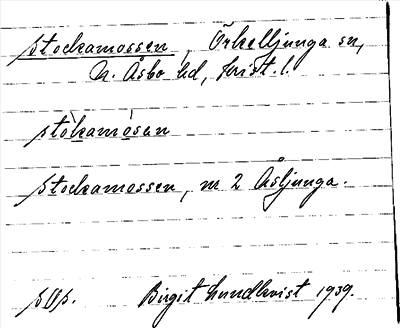 Stockamossen, Örkelljunga sn,
N. Åsbo hd, Krist. l.
stòkamósen
Stockamossen, m 2 Åsljunga.
Birgit Lundkvist 1939.